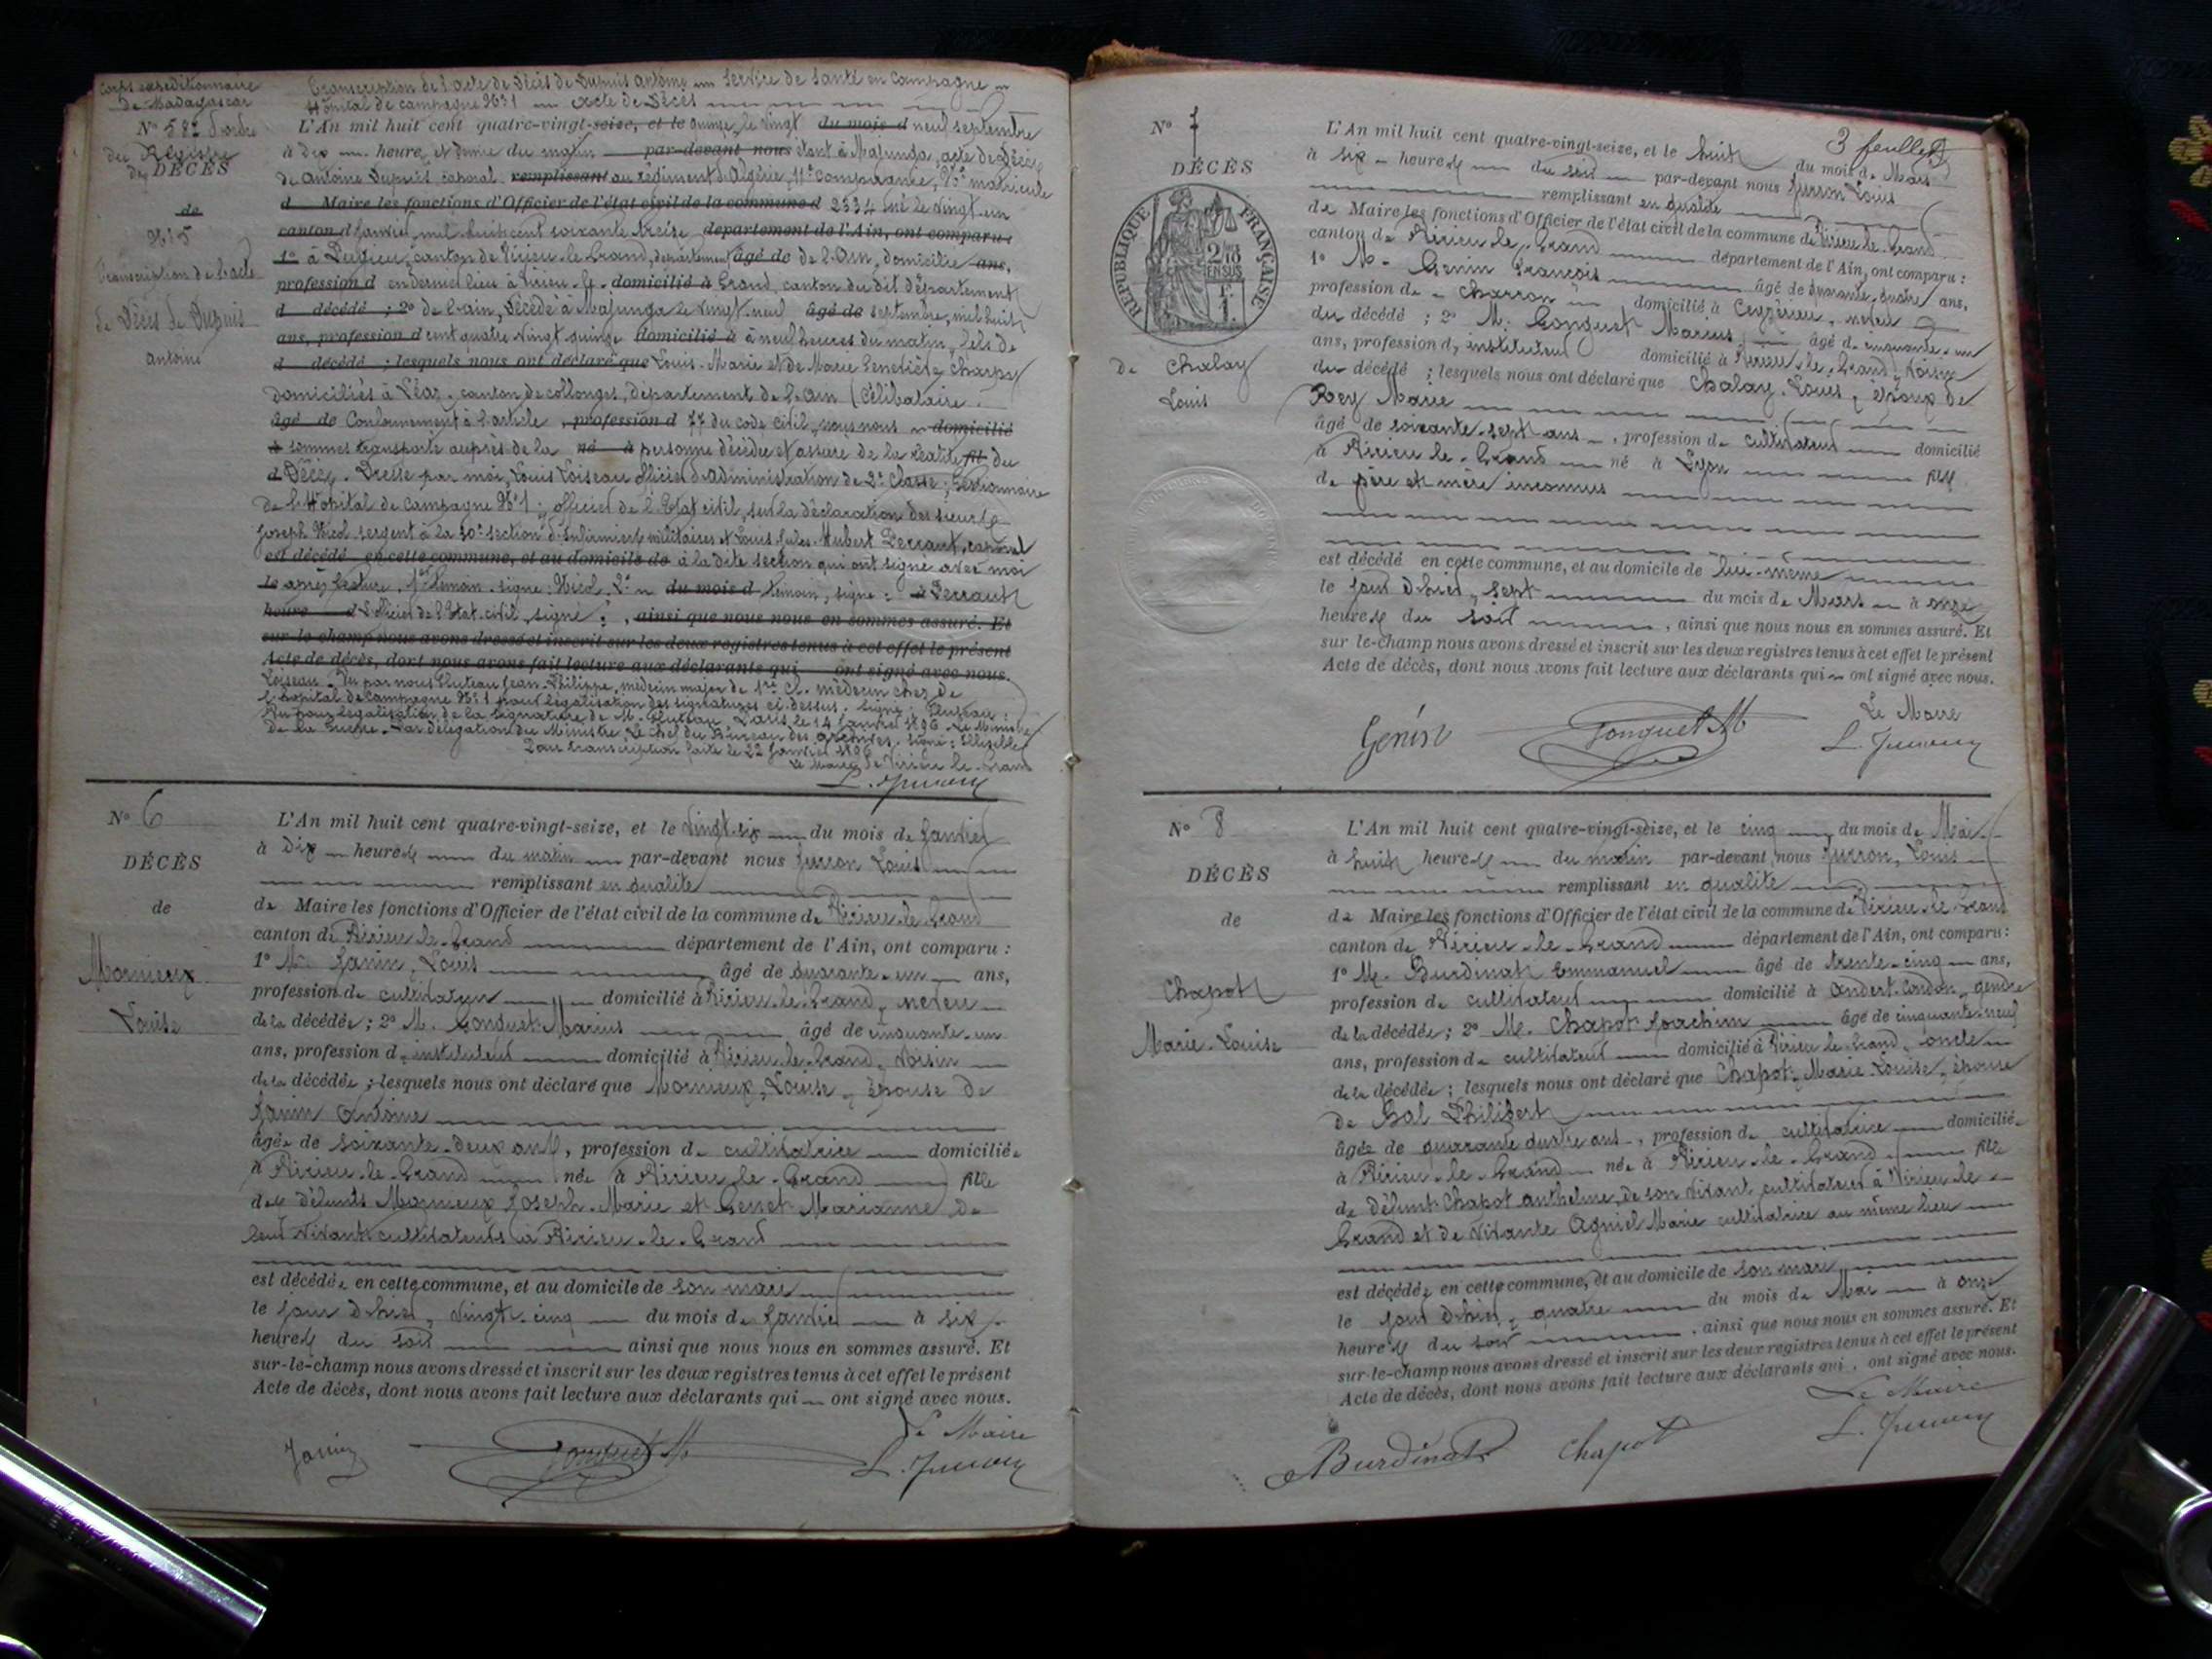 Corps expéditionnaire
de Madagascar
N° 582 d'ordre
du Registre
des DÉCÈS
de
N° 5
transcription de l'acte
de Décès de Dupuis
antoine
Transcription de l'acte de Décès de Dupuis antoine Service de Santé en Campagne
Hôpital de campagne N° 1 acte de Décès
L'An mil huit cent quatre-vingt-seize, et le quinze, le vingt du mois d neuf septembre
à dix heures et demie du matin par-devant nous étant à Majunga, acte de Décès
de antoine Dupuis caporal remplissant au régiment d'Algérie, 11e compagnie, N° matricule
d Maire les fonctions d'Officier de l'état civil de la commune d 2334 né le vingt-un
canton d Janvier, mil huit cent soixante treize département de l'Ain, ont comparu :
1° à Pugieu, canton de Virieu-le-Grand, département âgé de de l'Ain, domicilié ans,
profession d en dernier lieu à Virieu-le- domicilié à Grand, canton du dit département
d décédé ; 2° de l'ain, Décédé à Majunga le vingt-neuf âgé de septembre, mil huit
ans, profession d cent quatre vingt quinze domicilié à à neuf heures du matin, fils de
d décédé ; lesquels nous ont déclaré que Louis-Marie et de Marie Geneviève Charpy
domiciliés à Léaz, canton de Collonges, département de l'Ain (Célibataire.
âgé de Conformément à l'article , profession d 77 du code civil, nous nous domicilié
à sommes transporté auprès de la né à personne décédée et assuré de la réalité fil du
d Décès. Dressé par moi, Louis Loiseau officier d'administration de 2e classe, Gestionnaire
de l'Hôpital de Campagne N° 1, officier de l'Etat civil, sur la déclaration des sieurs
Joseph Nicol sergent à la 30e section d'Infirmiers militaires et Louis Jules Hubert Perraut, caporal
est décédé en cette commune, et au domicile de à la dite section qui ont signé avec moi
le après lecture. 1er témoin, signé Nicol, 2e du mois d témoin, signé : à Perraut
heure d L'officier de l'Etat civil, signé : , ainsi que nous nous en sommes assuré. Et
sur-le-champ nous avons dressé et inscrit sur les deux registres tenus à cet effet le présent
Acte de décès, dont nous avons fait lecture aux déclarants qui ont signé avec nous.
Loiseau. Vu par nous Jean-Philippe, médecin major de 1re Cl. médecin chef de
l'hôpital de Campagne N° 1 pour légalisation des signatures ci-dessus. Signé :
Vu pour légalisation de la signature de M. Paris, le 14 Janvier 1896. Le Ministre
de la Guerre. Par délégation du Ministre Le Chef du Bureau des archives. Signé : Illisible
Pour transcription faite le 22 Janvier 1896
Le Maire de Virieu-le-Grand
N° 6
DÉCÈS
de
Mornieux
Louise
L'An mil huit cent quatre-vingt-seize, et le vingt-six du mois de Janvier
à Dix heures du matin par-devant nous Juvron Louis
remplissant en qualité
de Maire les fonctions d'Officier de l'état civil de la commune de Virieu-le-Grand
canton de Virieu-le-Grand département de l'Ain, ont comparu :
1° M. Janin, Louis âgé de quarante-un ans,
profession de cultivateur domicilié à Virieu-le-Grand, neveu
de la décédée ; 2° M. Gonguet Marius âgé de cinquante-un
ans, profession d'instituteur domicilié à Virieu-le-Grand, voisin
de la décédée ; lesquels nous ont déclaré que Mornieux, Louise, épouse de
Janin Antoine
âgée de soixante-deux ans, profession de cultivatrice domiciliée
à Virieu-le-Grand née à Virieu-le-Grand fille
des défunts Mornieux Joseph-Marie et Genet Marianne de
leur vivant cultivateurs à Virieu-le-Grand
est décédée en cette commune, et au domicile de son mari
le jour d'hier, vingt-cinq du mois de Janvier à six
heures du soir ainsi que nous nous en sommes assuré. Et
sur-le-champ nous avons dressé et inscrit sur les deux registres tenus à cet effet le présent
Acte de décès, dont nous avons fait lecture aux déclarants qui ont signé avec nous.
Le Maire
Janin Gonguet M
3 feuillet
N° 7
DÉCÈS
RÉPUBLIQUE FRANÇAISE
de Chalay
Louis
L'An mil huit cent quatre-vingt-seize, et le huit du mois de Mars
à six heures du soir par-devant nous Juvron Louis
remplissant en qualité
de Maire les fonctions d'Officier de l'état civil de la commune de Virieu-le-Grand
canton de Virieu-le-Grand département de l'Ain, ont comparu :
1° M. Genin François âgé de quarante-quatre ans,
profession de charron domicilié à Ceyzérieu, neveu
du décédé ; 2° M. Gonguet Marius, âgé de cinquante-un
ans, profession d'instituteur domicilié à Virieu-le-Grand, voisin
du décédé ; lesquels nous ont déclaré que Chalay, Louis, époux de
Rey Marie
âgé de soixante-sept ans, profession de cultivateur domicilié
à Virieu-le-Grand né à Lyon fils
de père et mère inconnus
est décédé en cette commune, et au domicile de lui-même
le jour d'hier, sept du mois de Mars à onze
heures du soir , ainsi que nous nous en sommes assuré. Et
sur-le-champ nous avons dressé et inscrit sur les deux registres tenus à cet effet le présent
Acte de décès, dont nous avons fait lecture aux déclarants qui ont signé avec nous.
Le Maire
Génin Gonguet M
N° 8
DÉCÈS
de
Chapot
Marie-Louise
L'An mil huit cent quatre-vingt-seize, et le cinq du mois de Mai
à huit heures du matin par-devant nous Juvron, Louis
remplissant en qualité
de Maire les fonctions d'Officier de l'état civil de la commune de Virieu-le-Grand
canton de Virieu-le-Grand département de l'Ain, ont comparu :
1° M. Burdinat Emmanuel âgé de trente-cinq ans,
profession de cultivateur domicilié à Andert-Condon, gendre
de la décédée ; 2° M. Chapot Joachim âgé de cinquante-neuf
ans, profession de cultivateur domicilié à Virieu le Grand, oncle
de la décédée ; lesquels nous ont déclaré que Chapot, Marie-Louise, épouse
de Bal Philibert
âgée de quarante quatre ans, profession de cultivatrice domiciliée
à Virieu-le-Grand née à Virieu-le-Grand fille
de défunt Chapot Anthelme, de son vivant cultivateur à Virieu-le-
Grand et de vivante Agniel Marie cultivatrice au même lieu
est décédée en cette commune, et au domicile de son mari
le jour d'hier, quatre du mois de Mai à onze
heures du soir , ainsi que nous nous en sommes assuré. Et
sur-le-champ nous avons dressé et inscrit sur les deux registres tenus à cet effet le présent
Acte de décès, dont nous avons fait lecture aux déclarants qui ont signé avec nous.
Le Maire
Burdinat Chapot